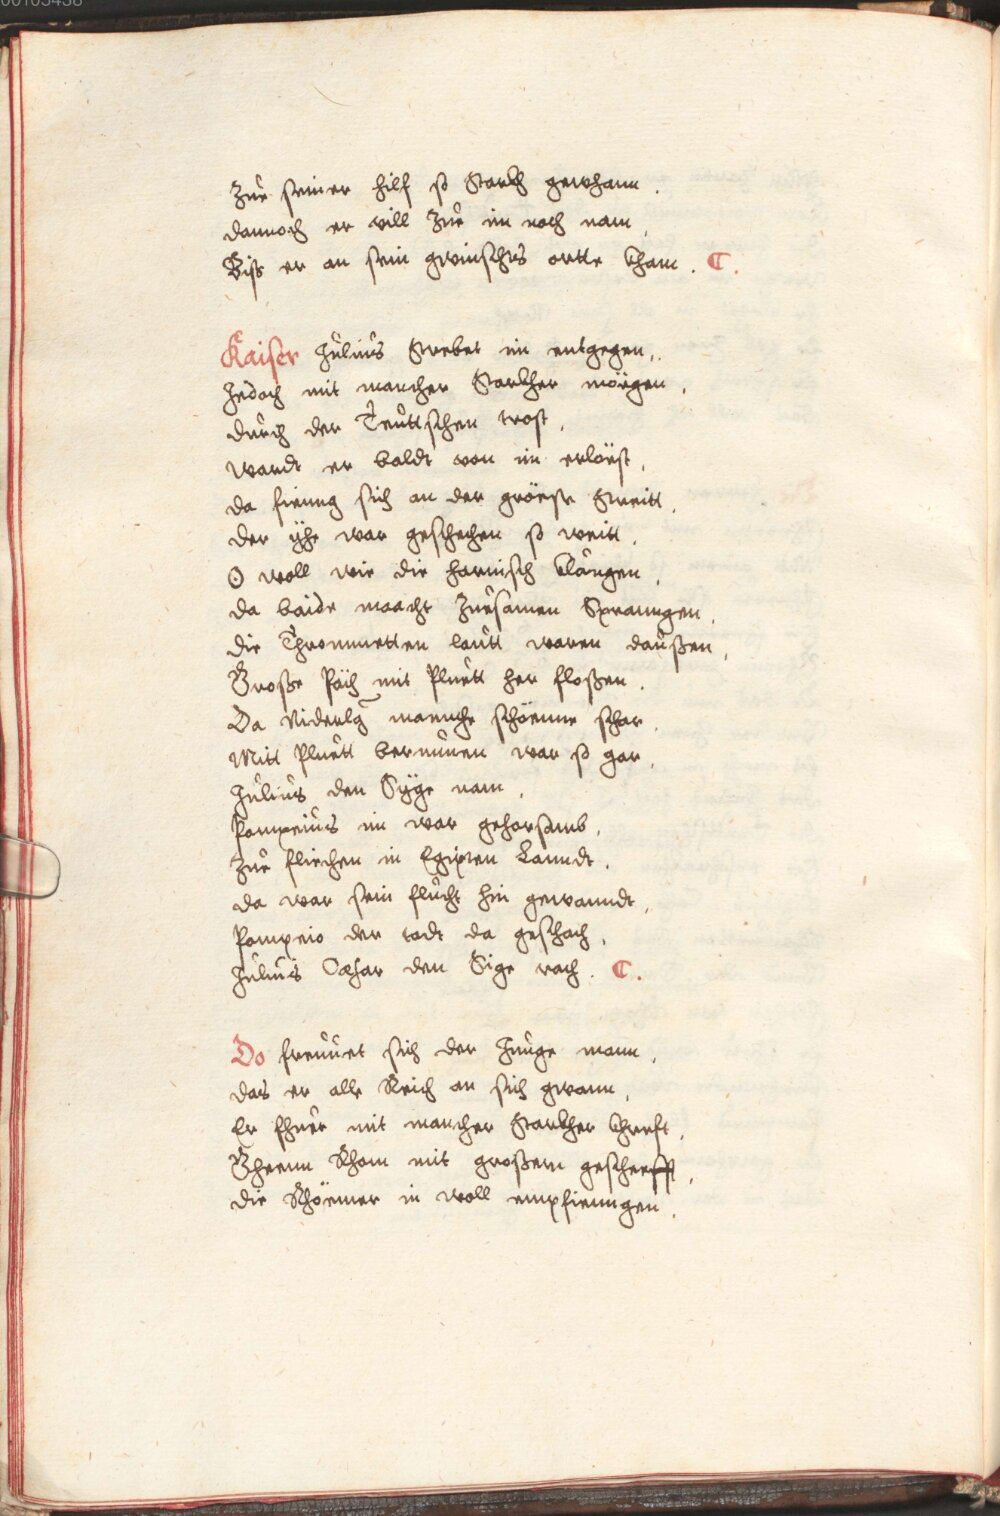 00105438
Zur seiner hilf so starkh gewhann.
dannoch er vill zur im noch nam,
Biss er an sein gwinschts ortte kham. C.
Kaiser Julius strebet im entgegen,.
Jedoch mit mancher starkher mörgen,
durch der Teuttschen trost,
wardt er baldt von im erlöest,
da fienng sich an der gröeste streitt,
der yhe war geschechen so weitt.
O woll wie die harnisch klangen,
da baide maacht zuesamen Spranngen.
die Thrommetten lautt waren daussen,
Grosse Päch mit Pluett her flossen.
Da Niderlg manche schöenne schar,
Mitt Pluett berunnen war so gar,
Julius den Syge nam,
Pompeius im war gehorsamb,
zue fliechen in Egipten Lanndt.
da war sein flucht hin gewanndt,
Pompeio der todt da geschach,
Julius Cæsar den Sige rach. C.
Do freuuet sich der Junge mann,
das er alle Reich an sich gwann,
Er fhuer mit mancher starkher khreft,
Gheenn Rhom mit grossem gescheefft,
die Rhöemer in woll empfienngen.